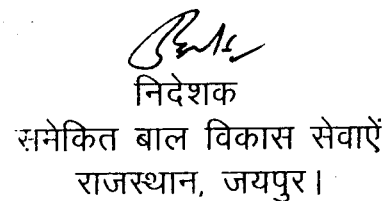 निदेशक
समेकित बाल विकास सेवाऐं
राजस्थान, जयपुर।